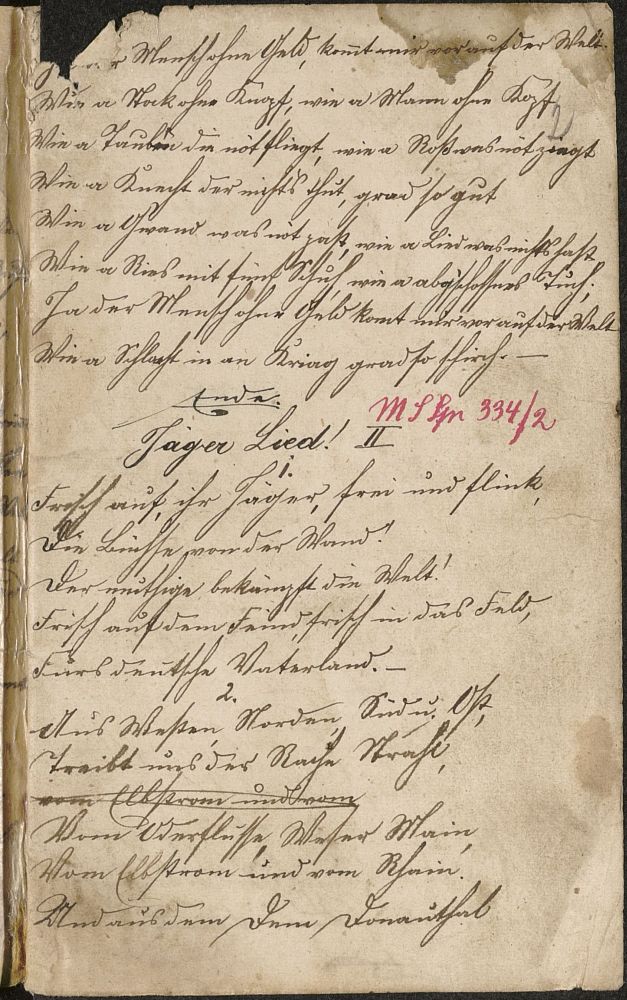 Mensch ohne Geld, komt mir vor auf der Welt.
2
Wie a Stock ohne Knopf, wie a Mann ohne Kopf
Wie a Tauben die nöt fliegt, wie a Roß was nöt ziegt
Wie a Knecht der nichts thut, grad so gut
Wie a Gwand was not past, wie a Lied was nichts hast
Wie a Ries mit fünf Schuh, wie a abgschossnes Tuch.
Ja der Mensch ohne Geld komt mir vor auf der Welt
Wie a Schlacht in an Kriag grad so schirch. —
Ende.
MS Lgn 334/2
Jäger Lied! II
1.
Frisch auf, ihr Jäger, frei und flink,
Die Büchse von der Wand!
Der muthige bekämpft die Welt!
Frisch auf dem Feind, frisch in das Feld,
Fürs deutsche Vaterland. —
2.
Aus Westen, Norden, Süd u. Ost,
Treibt uns der Rache Strahl,
vom Elbstrom und vom
Vom Oderflusse, Weser Main,
Vom Elbstrom und vom Rhein.
Und aus dem Dem Donauthal